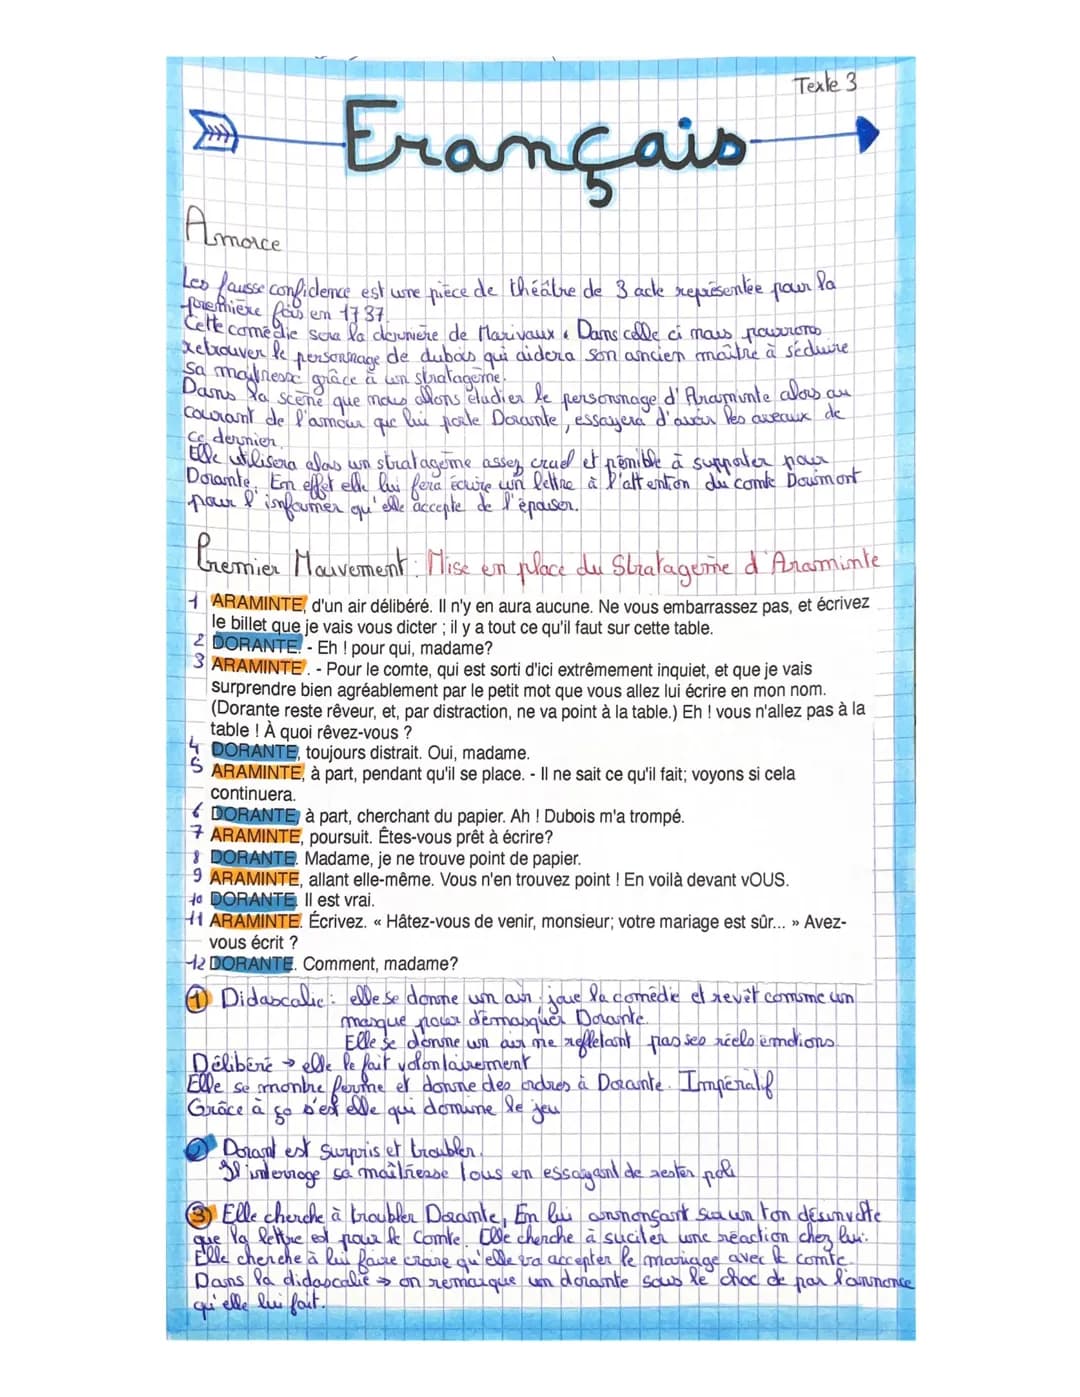 Texte 3
Français
Amorce
Les fausse confidence est une pièce de théâtre de 3 acte représentée pour la
première fois en 1737.
Cette comédie sera la dernière de Marivaux. Dans celle ci nous pourrons
retrouver le personnage de dubois qui aidera son ancien maître à séduire
sa maîtresse grâce à un stratagème.
Dans la scène que nous allons étudier le personnage d'Araminte alors au
courant de l'amour que lui porte Dorante, essayera d'avoir les aveaux de
ce dernier.
Elle utilisera alors un stratagème assez cruel et pénible à supporter pour
Dorante. En effet elle lui fera écrire un lettre à l'attention du comte Doumont
pour l'informer qu'elle accepte de l'épouser.
Premier Mouvement : Mise en place du Stratagème d'Araminte
1 ARAMINTE, d'un air délibéré. Il n'y en aura aucune. Ne vous embarrassez pas, et écrivez
le billet que je vais vous dicter ; il y a tout ce qu'il faut sur cette table.
2 DORANTE. - Eh ! pour qui, madame?
3 ARAMINTE . - Pour le comte, qui est sorti d'ici extrêmement inquiet, et que je vais
surprendre bien agréablement par le petit mot que vous allez lui écrire en mon nom.
(Dorante reste rêveur, et, par distraction, ne va point à la table.) Eh ! vous n'allez pas à la
table ! À quoi rêvez-vous ?
4 DORANTE, toujours distrait. Oui, madame.
5 ARAMINTE, à part, pendant qu'il se place. - Il ne sait ce qu'il fait; voyons si cela
continuera.
6 DORANTE, à part, cherchant du papier. Ah ! Dubois m'a trompé.
7 ARAMINTE, poursuit. Êtes-vous prêt à écrire?
8 DORANTE. Madame, je ne trouve point de papier.
9 ARAMINTE, allant elle-même. Vous n'en trouvez point ! En voilà devant vOUS.
10 DORANTE. Il est vrai.
11 ARAMINTE. Écrivez. « Hâtez-vous de venir, monsieur; votre mariage est sûr... » Avez-
vous écrit ?
12 DORANTE. Comment, madame?
1 Didascalie : elle se donne un air joue la comédie et revêt comme un
masque pour démasquer Dorante.
Elle se donne un air ne reflétant pas ses réels émotions.
Délibéré → elle le fait volontairement
Elle se montre ferme et donne des ordres à Dorante. Impératif
Grâce à ça c'est elle qui domine le jeu
2 Dorant est surpris et troubler.
Il interroge sa maîtresse tous en essayant de rester poli
3 Elle cherche à troubler Dorante, En lui annonçant sur un ton désinvolte
que la lettre est pour le Comte. Elle cherche a suciter une réaction chez lui.
Elle cherche à lui faire croire qu'elle va accepter le mariage avec le comte.
Dans la didascalie → on remarque un dorante sous le choc de par l'annonce
qu'elle lui fait.